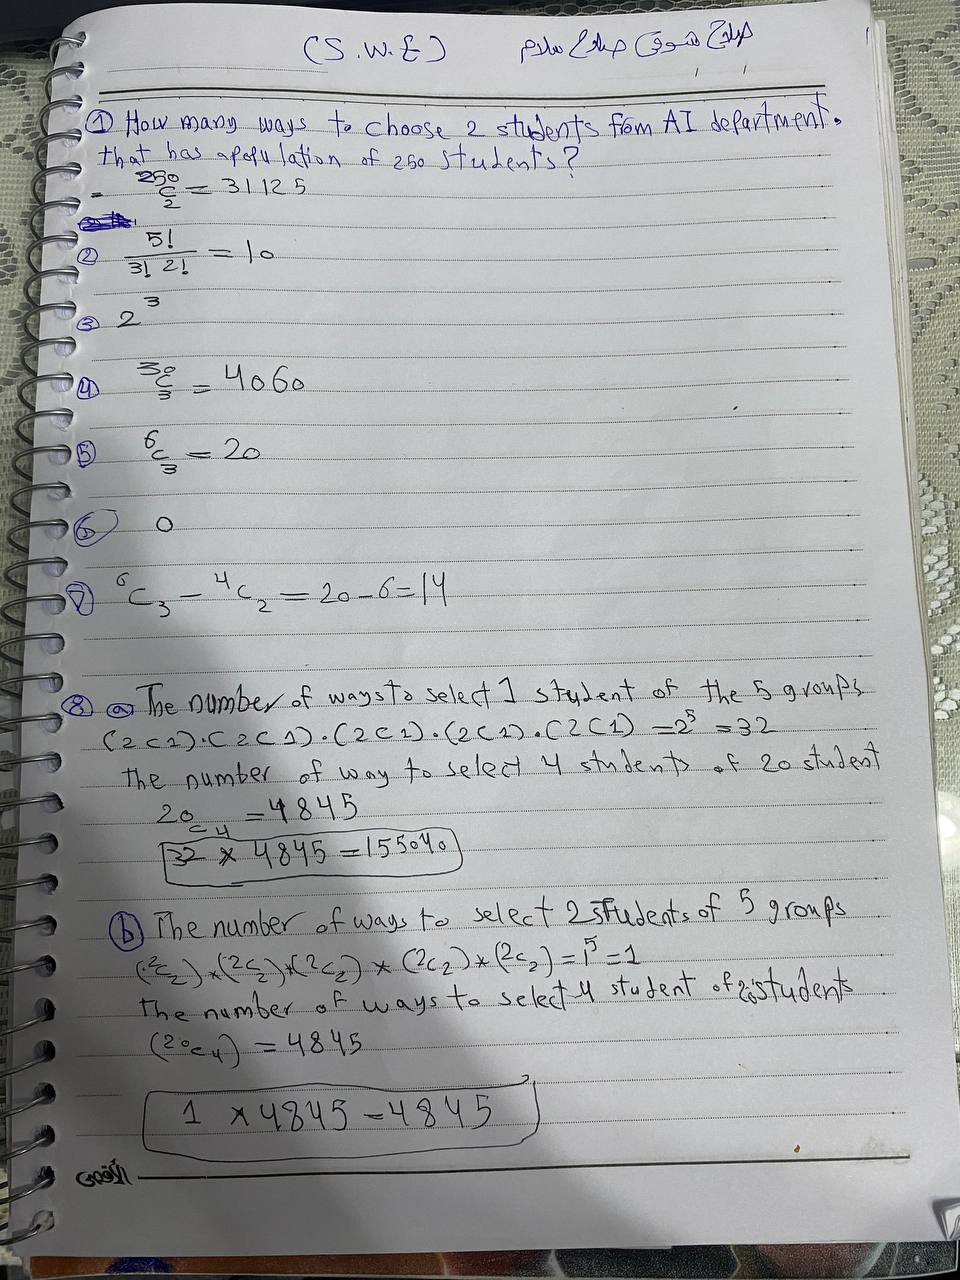 (S.W.E) صلاح شوقى صلاح سلام
① How many ways to choose 2 students from AI department.
that has apopulation of 250 students?
- 250 C 2 = 31125
② 5! / 3! 2! = 10
③ 2³
④ 30 C 3 = 4060
⑤ 6 C 3 = 20
⑥ 0
⑦ ⁶C₃ - ⁴C₂ = 20-6=14
⑧ ⓐ The number of ways to select 1 student of the 5 groups
(2C1).(2C1).(2C1).(2C1).(2C1) = 2⁵ = 32
the number of way to select 4 students of 20 student
20 C 4 = 4845
32 * 4845 = 155040
ⓑ The number of ways to select 2 students of 5 groups
(²C₂)*(²C₂)*(²C₂)*(²C₂)*(²C₂) = 1⁵ = 1
the number of ways to select 4 student of 20 students
(²⁰C₄) = 4845
1 * 4845 = 4845
الأقصى